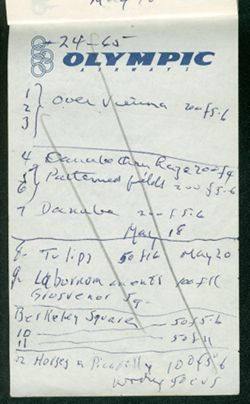 May 10
-24-65
OLYMPIC
AIRWAYS
1
2 } Over Vienna 200 f5.6
3
4 Danube thru haze 200 f4
5 } Patterned fields 200 f5.6
6
7 Danube 200 f5.6
May 18
8- Tulips 50 f16 May 20
9- Laburnam 100 f11
Grosvenor Sq.
Berkeley Square 50 f5.6
10
11 50 f11
12 Horses in Picadilly 100 f5.6